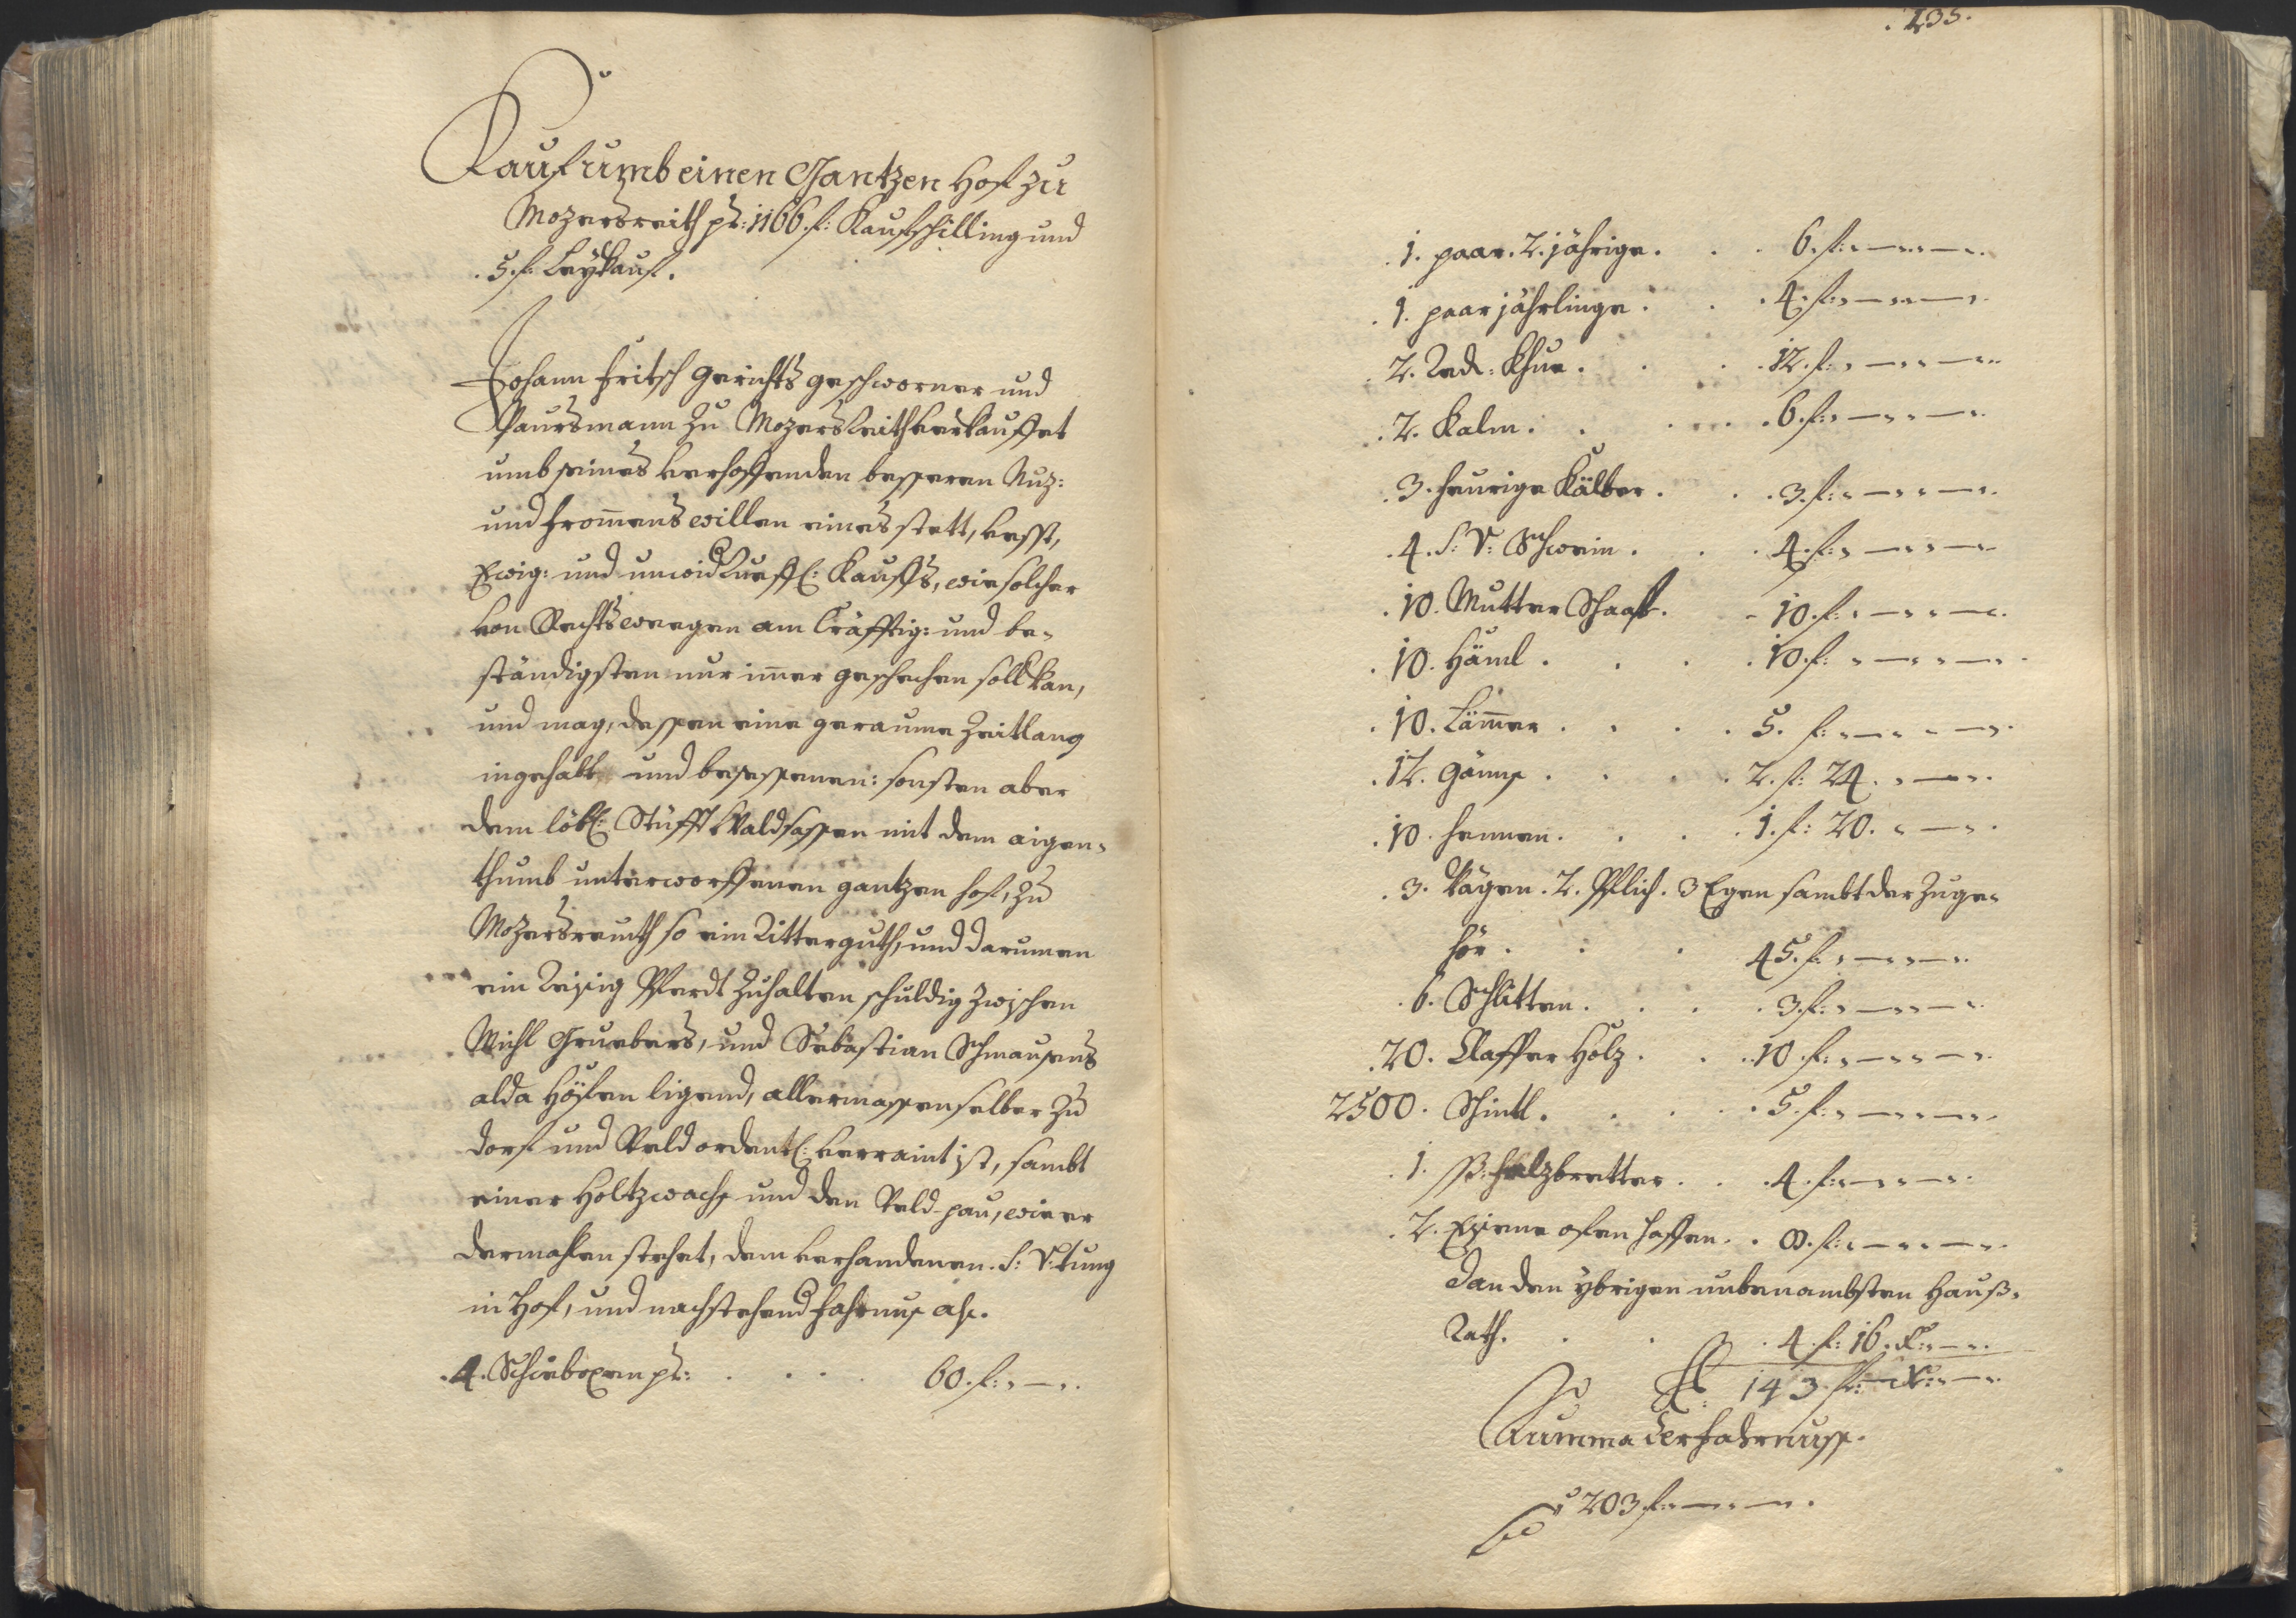 Kauf umb einen Gantzen Hof zu
Mozersreith pr: 1166. f: Kaufschilling und
. 5. f: Leykauf.
Johann Fritsch Gerichts geschworner und
Paursmann zu Mozersreith verkauffet
umb seines verhoffenden besseren Nuz:
und From̄ens willen eines stett, vesst,
Ewig: und unwid Kueffl: Kauffs, wie solcher
von Rechts weegen am Cräfftig: und be-
ständigsten nur im̄er geschechen soll kan,
und mag, dessen eine geraume Zeitlang
ingehabt und besessenen: sonsten aber
dem löbl: Stüfft Waldsassen mit dem aigen-
thumb unterworffenen gantzen Hof, zu
Mozersreuth so ein Ritterguth, und darumen
ein Reisig Pferdt zuhalten schuldig zwischen
Michl Gruebers, und Sebastian Schmausens
alda Höfen ligend, allermassen selber zu
Dorf und Veld ordentl: verraint ist, sambt
einer Holtzwachs und den Veld-pau, wie er
dermahlen stehet, dem verhandenen. S: V: tung
in Hof, und nachstehend Fahrnus als.
. 4. Schieboxen pr: . . . . 60. f: - — -.
. 235.
. 1. paar. 2. jährige. . . 6. f: - — - - — -.
. 1. paar jährlinge . . . 4. f: - — - - — -.
. 2. Red: Khue . . . 12. f: - — - - — -.
. 2. Kalm . . . . 6. f: - — - - — -.
. 3. heurige Kälber . . . 3. f: - — - - — -.
. 4. S: V: Schwein . . . 4. f: - — - - — -.
. 10. Mutter Schaaf. - 10. f: - — - - — -.
. 10. Häml . . . . 10. f: - — - - — -.
. 10. Läm̄er . . . . 5. f: - — - - — -.
. 12. Gänns . . . . 2. f: 24. - — -.
. 10. Hennen . . . . 1. f: 20. - — -.
. 3. Wägen . 2. Pflich. 3 Egen sambt der Zuge-
hör . . . 45. f: - — - - — -.
. 6. Schlitten . . . . 3. f: - — - - — -.
. 20. Claffter Holz . . . 10. f: - — - - — -.
2500. Schintl . . . . 5. f: - — - - — -.
. 1. ß: falzbretter . . . 4. f: - — - - — -.
. 2. Eisene ofen haffen . . 8. f: - — - - — -.
Dan den ybrigen unbenambsten Hauß-
Rath. . . . 4. f: 16. x: - — -.
143. f: — x: - — -.
Summa der Fahrnuss.
203 f: - — - - — - .